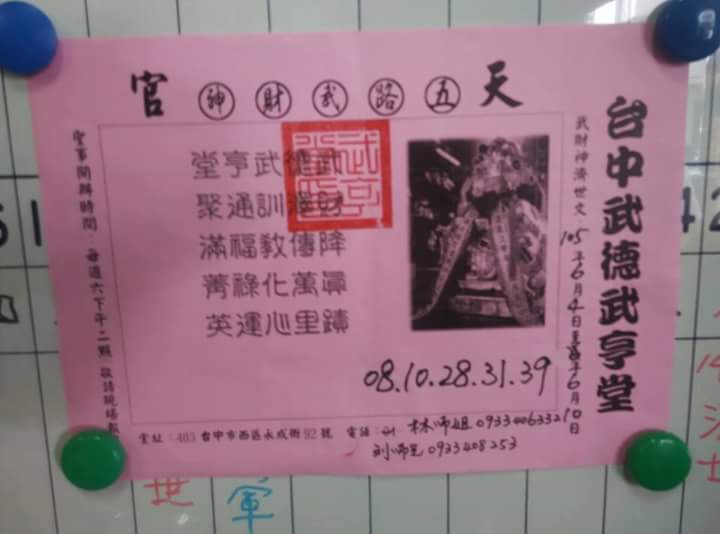 天五路武財神官
台中武德武亨堂
武財神濟世文：105年6月4日至 年6月10日
武德武亨堂
財源訓通聚
降傳教福滿
眞萬化祿菁
蹟里心運英
08.10.28.31.39
聖事開辦時間：每週六下午二點 敬請現場
堂址：403 台中市西區永成街92號 電話：
林师姐 0933406332
刘师兄 0933408253
世
軍